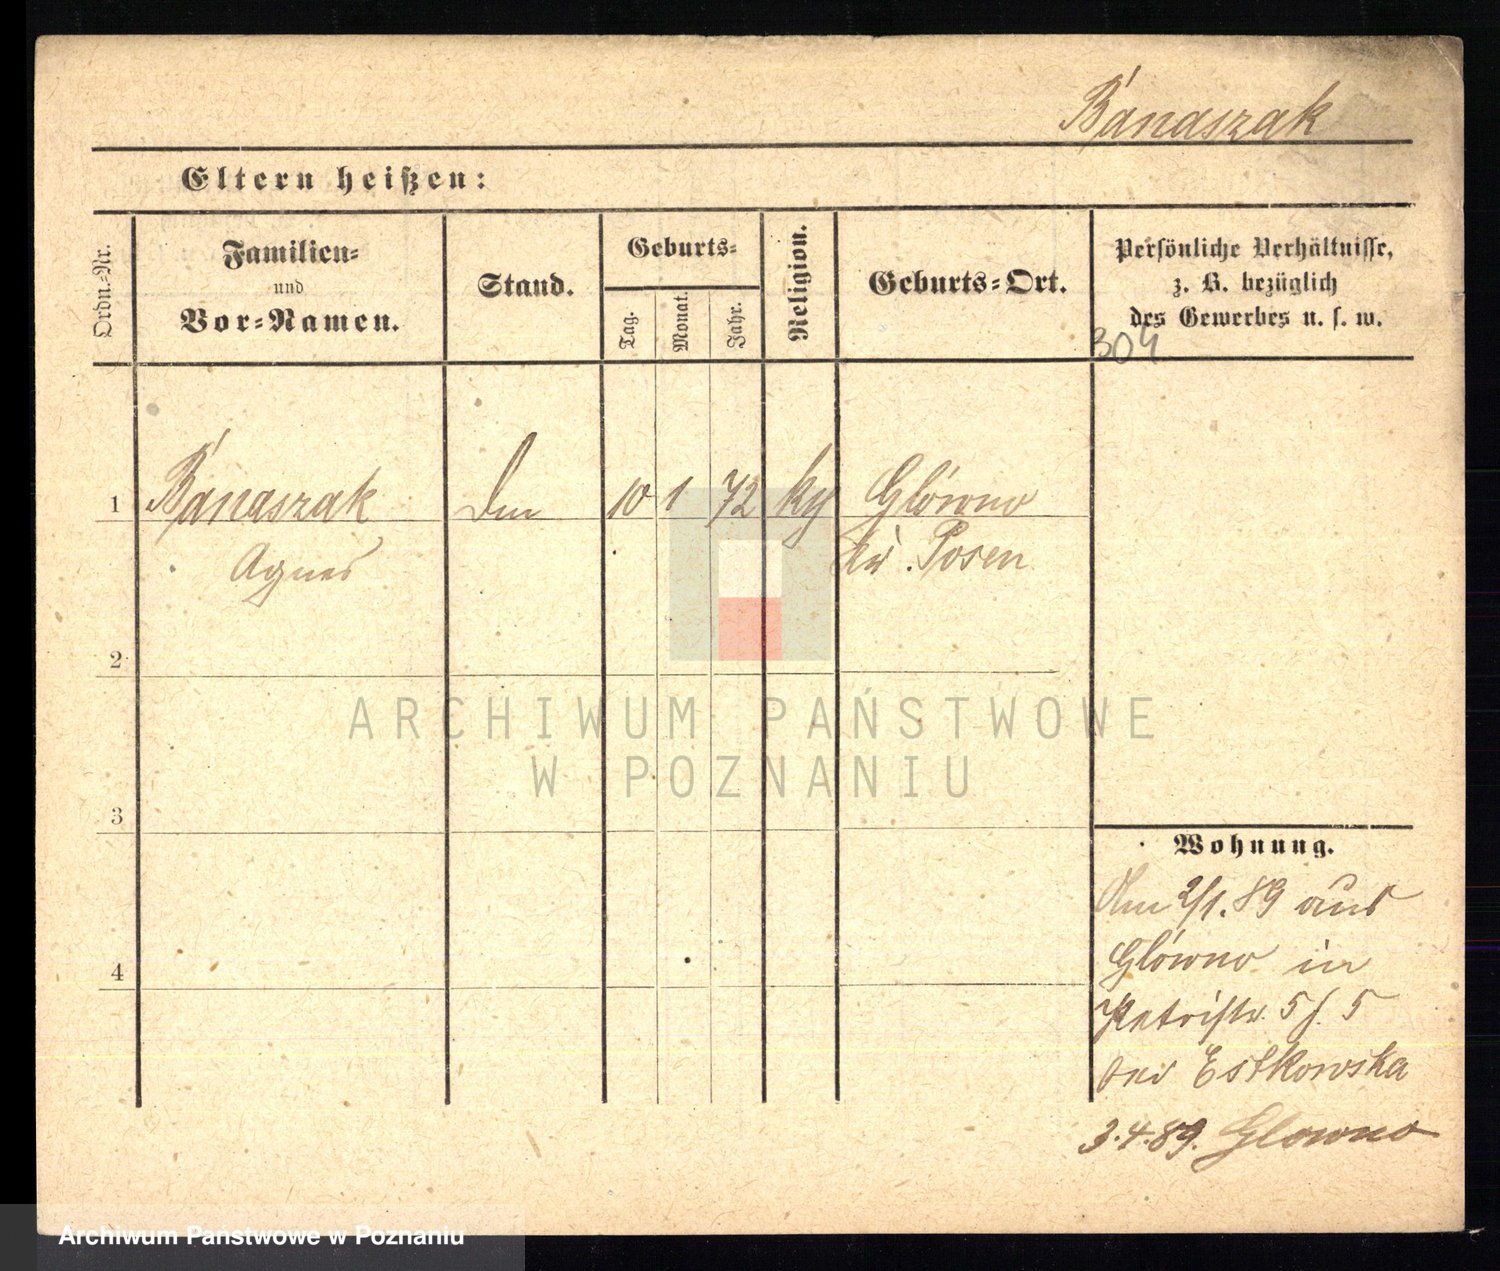 Banaszak
Eltern heißen:
Ordn.-Nr.
Familien-
und
Vor-Namen.
Stand.
Geburts-
Tag.
Monat.
Jahr.
Religion.
Geburts-Ort.
Persönliche Verhältnisse,
z. B. bezüglich
des Gewerbes u. s. w.
304
1 Banaszak 10 1 72 Główno
Agnes Posen
2
3
4
Wohnung.
Am 2/1.89 aus
Główno in
Petristr. 5 f. 5
bei Estkowska
3.4.89. Glowno
ARCHIWUM PAŃSTWOWE
W POZNANIU
Archiwum Państwowe w Poznaniu